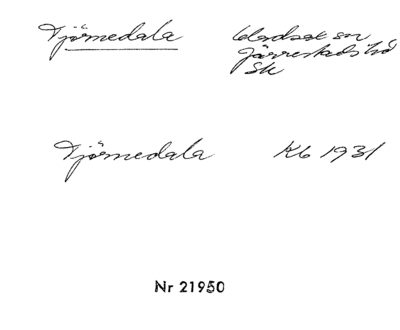 Tjörnedala Gladsax sn
Järrestads hd
Sk
Tjörnedala Kb 1931
Nr 21950